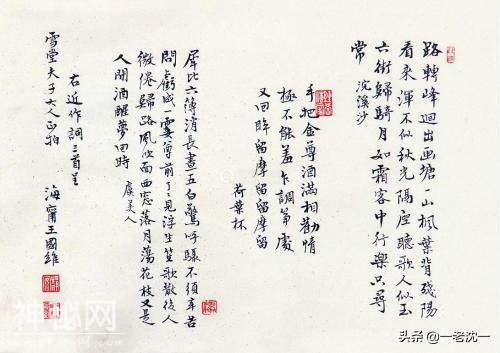 路轉峰迴出画塘一山楓葉背殘陽
看來渾不似秋光隔座聽歌人似玉
六街歸騎月如霜客中行樂只尋
常 浣溪沙
手把金尊酒滿相勸情
極不能羞乍調箏處
又回眸留摩留留摩留
荷葉杯
犀比六博消長晝五白驚呼驟不須辛苦
問虧成一霎尊前了了見浮生笙歌散後人
微倦歸路風吹面西窓落月蕩花枝又是
人間酒醒夢回時 虞美人
右近作詞三首呈
雪堂夫子大人正拍
海甯王國維
神秘网
头条 @一老沈一